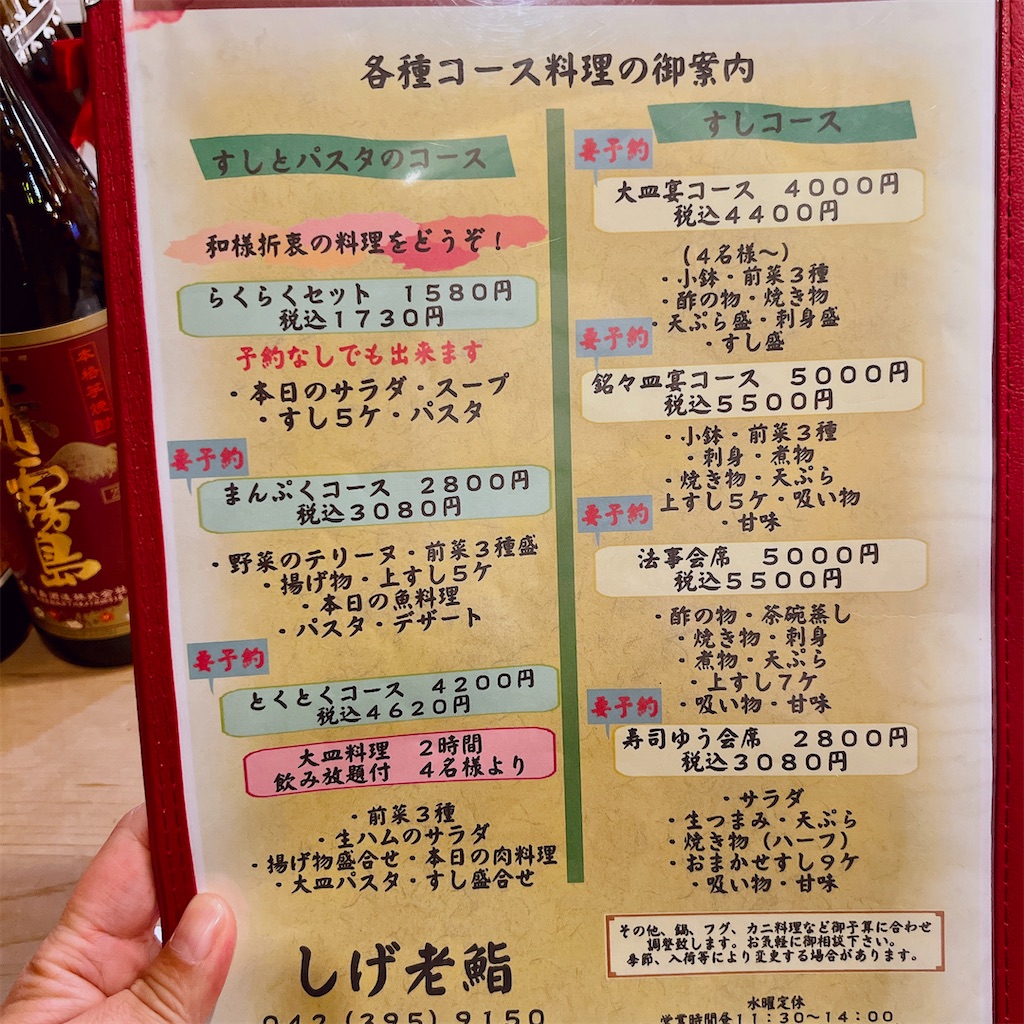 各種コース料理の御案内
すしとパスタのコース
和様折衷の料理をどうぞ!
らくらくセット 1580円
税込1730円
予約なしでも出来ます
・本日のサラダ・スープ
・すし5ケ・パスタ
要予約
まんぷくコース 2800円
税込3080円
・野菜のテリーヌ・前菜3種盛
・揚げ物・上すし5ケ
・本日の魚料理
・パスタ・デザート
要予約
とくとくコース 4200円
税込4620円
大皿料理 2時間
飲み放題付 4名様より
・前菜3種
・生ハムのサラダ
・揚げ物盛合せ・本日の肉料理
・大皿パスタ・すし盛合せ
しげ老鮨
042(395)9150
すしコース
要予約
大皿宴コース 4000円
税込4400円
(4名様~)
・小鉢・前菜3種
・酢の物・焼き物
・天ぷら盛・刺身盛
・すし盛
要予約
銘々皿宴コース 5000円
税込5500円
・小鉢・前菜3種
・刺身・煮物
・焼き物・天ぷら
上すし5ケ・吸い物
・甘味
要予約
法事会席 5000円
税込5500円
・酢の物・茶碗蒸し
・焼き物・刺身
・煮物・天ぷら
・上すし7ケ
・吸い物・甘味
要予約
寿司ゆう会席 2800円
税込3080円
・サラダ
・生つまみ・天ぷら
・焼き物(ハーフ)
・おまかせすし9ケ
・吸い物・甘味
その他、鍋、フグ、カニ料理など御予算に合わせ
調整致します。お気軽に御相談下さい。
季節、入荷等により変更する場合があります。
水曜定休
営業時間昼11:30~14:00
本格芋焼酎
赤霧島